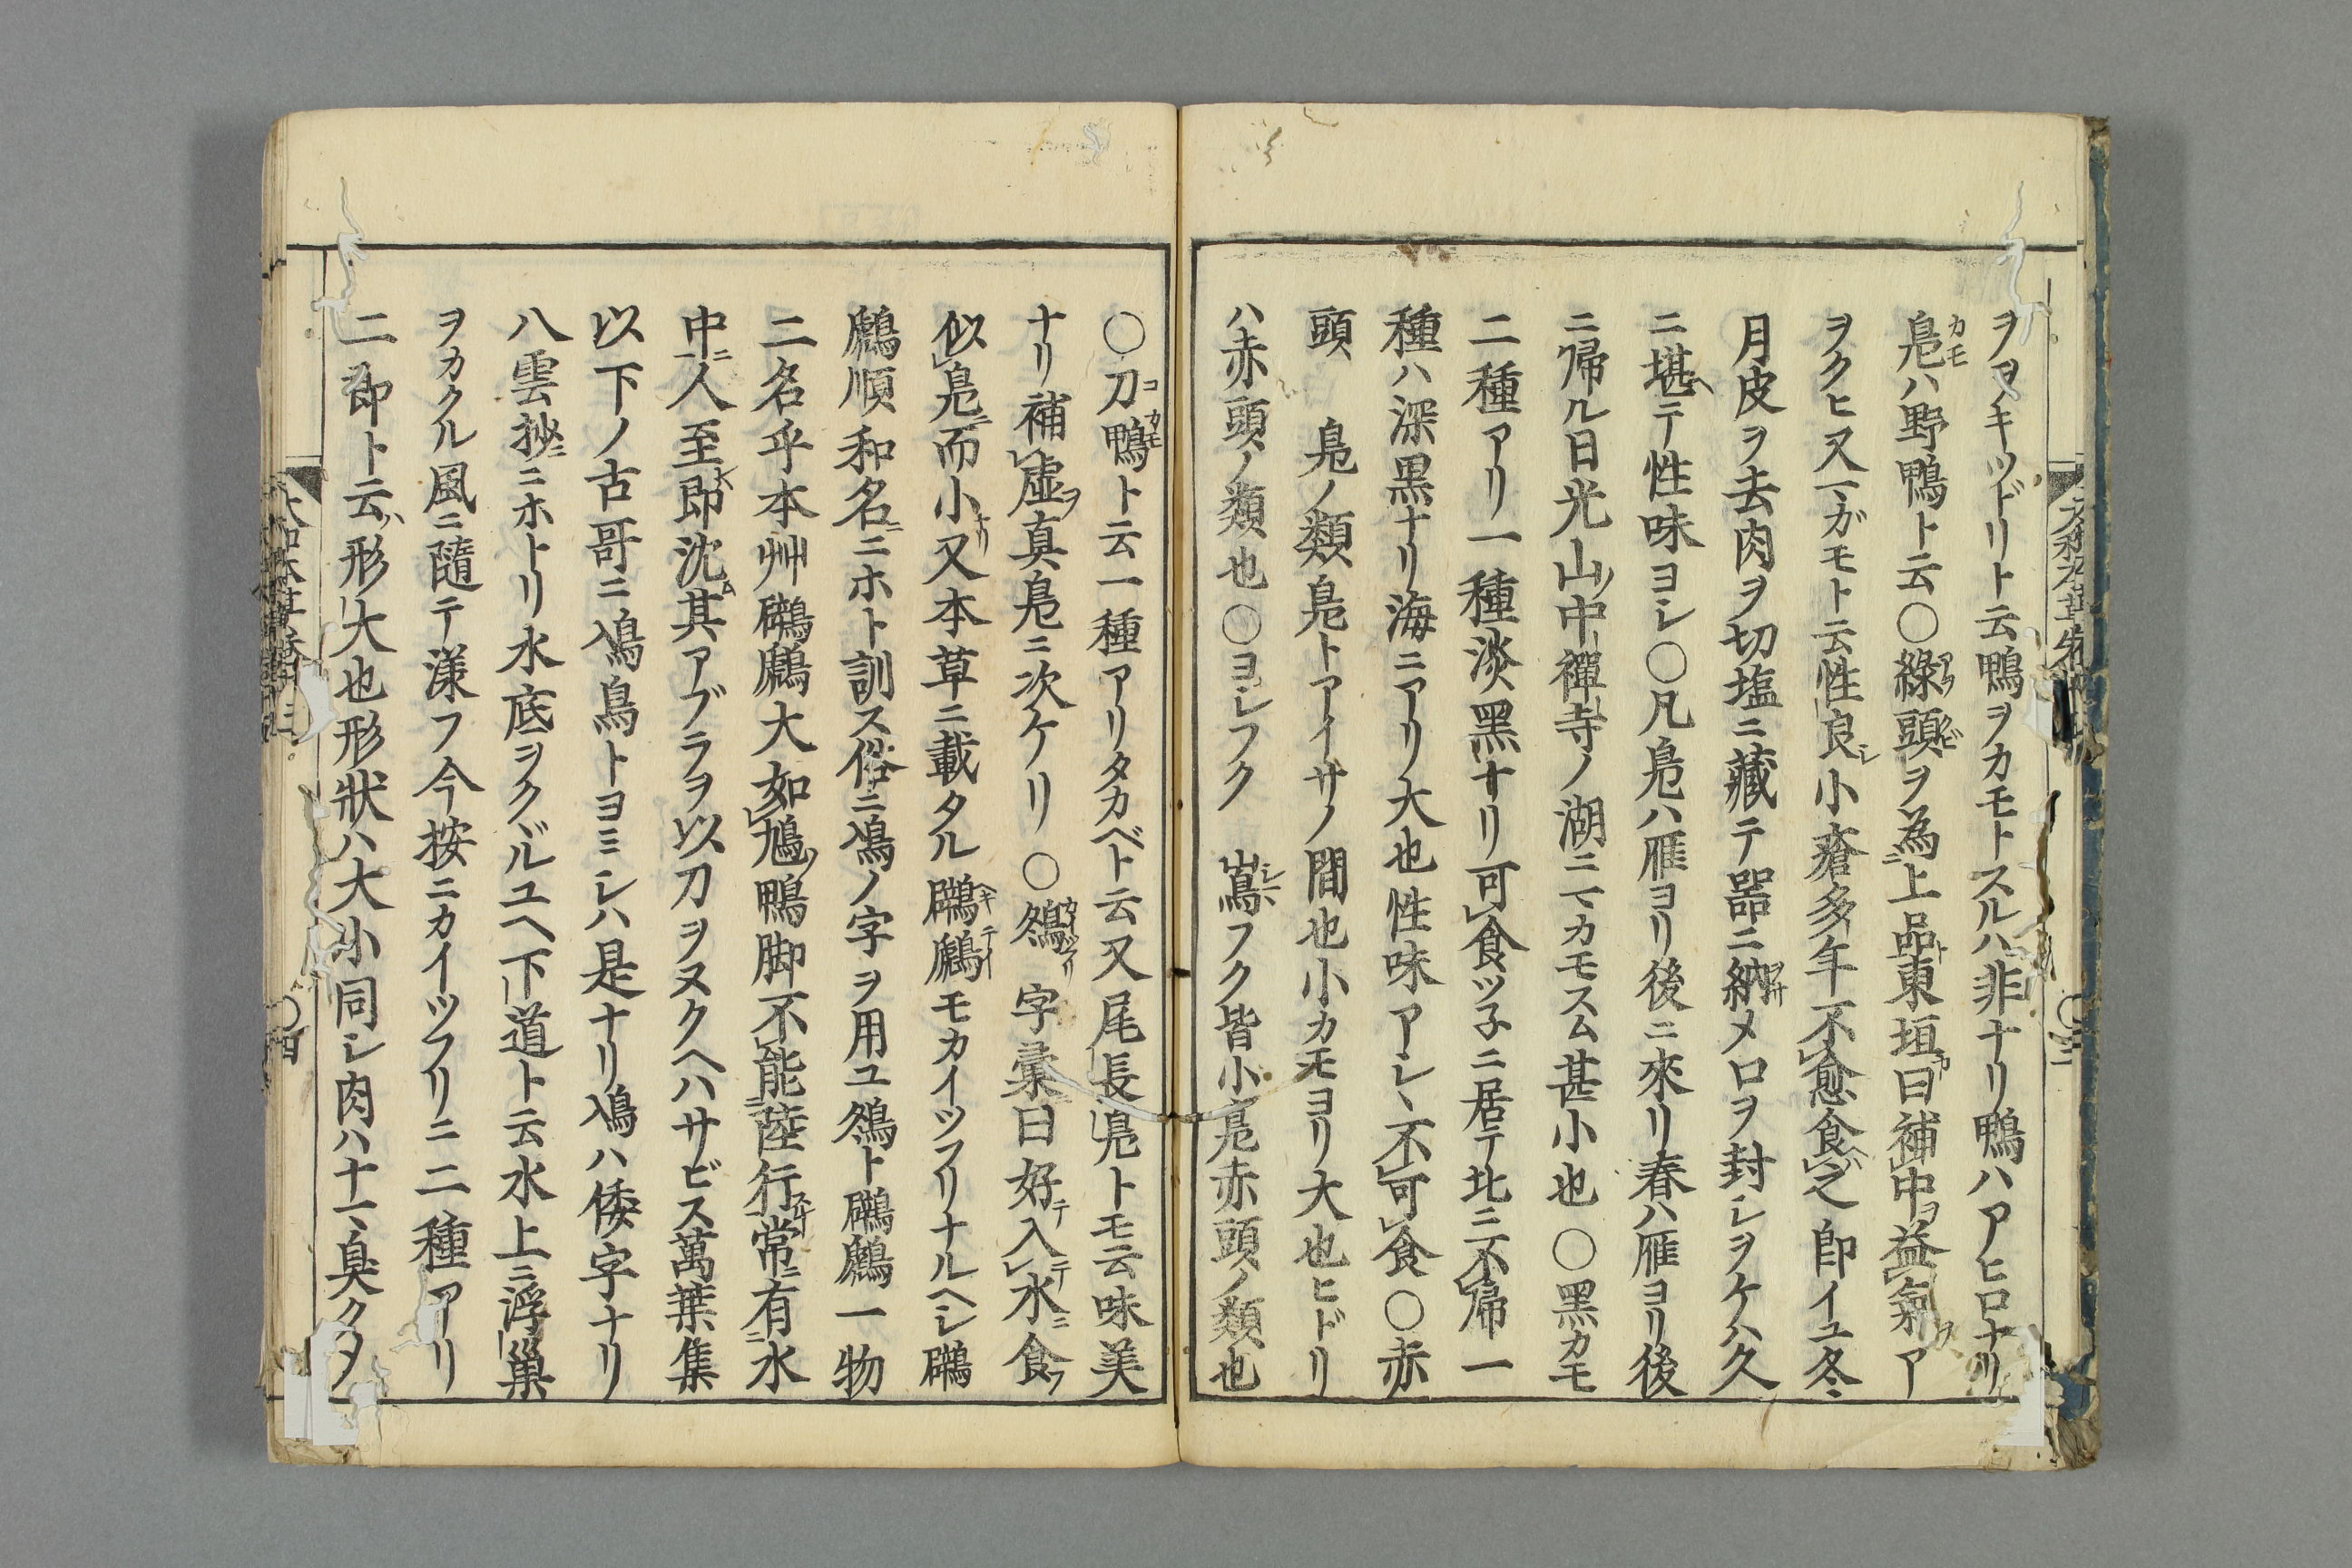 ヲヲキツドリト云鴨ヲカモトスルハ非ナリ鴨ハアヒロナリ
鳧ハ野鴨ト云○綠頭ヲ為上品東垣曰補中益氣ア
ヲクヒ又一ガモト云性良シ小瘡多年不愈食之即イユ冬
月皮ヲ去肉ヲ切塩ニ藏テ器ニ納メ口ヲ封シヲケハ久
ニ堪ヘテ性味ヨシ○凡鳧ハ雁ヨリ後ニ來リ春ハ雁ヨリ後
ニ帰ル日光山ノ中禪寺ノ湖ニマカモスム甚小也○黒カモ
二種アリ一種淡黑ナリ可食ツ子ニ居テ北ニ不帰一
種ハ深黒ナリ海ニアリ大也性味アシヽ不可食○赤
頭 鳧ノ類鳧トアイサノ間也小カモヨリ大也ヒドリ
ハ赤頭ノ類也○ヨシフク 嶌フク皆小鳧赤頭ノ類也
○刀鴨ト云一種アリタカベト云又尾長鳧トモ云味美
ナリ補虚真鳧ニ次ケリ○鸂 字彙曰好入水食
似鳧而小又本草ニ載タル鸊鷉モカイツフリナルヘシ鸊
鷉順和名ニニホト訓ス俗ニ鳰ノ字ヲ用ユ鸂ト鸊鷉一物
二名乎本艸鸊鷉大如鳩鴨脚不能陸行常有水
中人至即沈其アブラヲ以刀ヲヌクヘハサビス萬葉集
以下ノ古哥ニ鳰鳥トヨミシハ是ナリ鳰ハ倭字ナリ
八雲抄ニニホトリ水底ヲクヾルユヘ下道ト云水上ニ浮巢
ヲカクル風ニ隨テ漾フ今按ニカイツフリニ二種アリ
二卸ト云ハ形大也形狀ハ大小同シ肉ハ十一、臭クタ